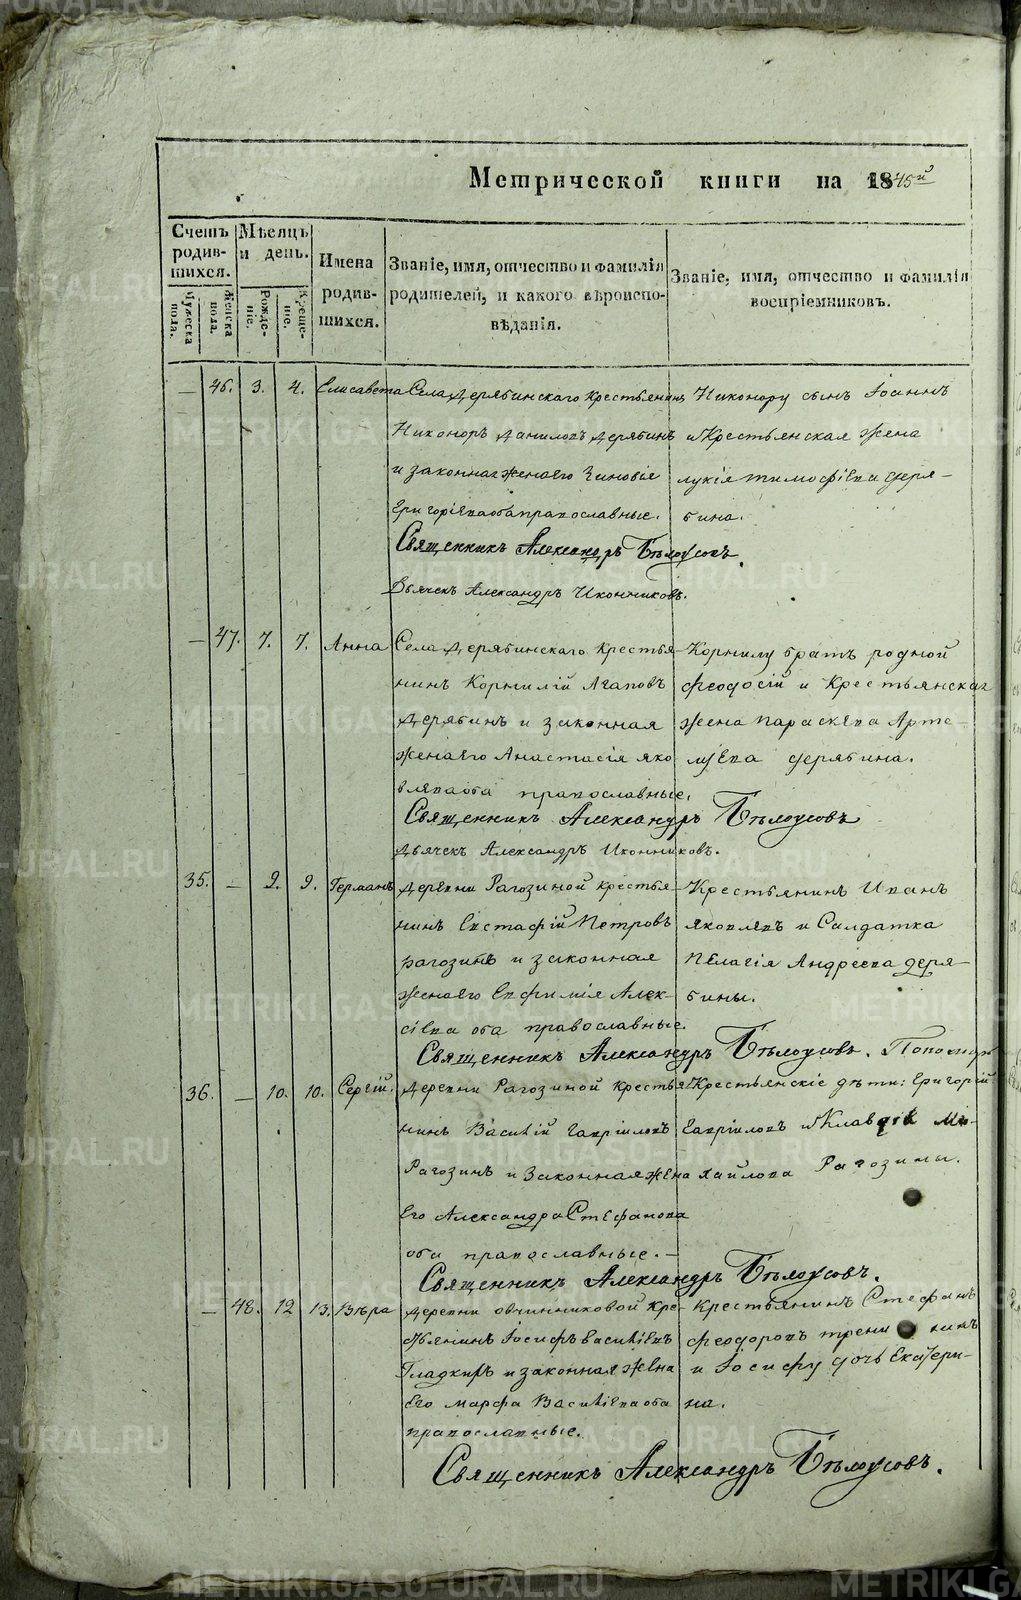 Метрической книги на 1845й
Счетъ родив-шихся.
Мѣсяцъ и день.
Имена родив-шихся.
Званіе, имя, отчество и фамилія родителей, и какого вѣроиспо-вѣданія.
Званіе, имя, отчество и фамилія воспріемниковъ.
Мужеска пола.
Женска пола.
Рожде-ніе.
Креще-ніе.
— 46. 3. 4. Елисавета Села Дерябинскаго крестьянинъ Никонору сынъ Іоаннъ
Никоноръ Даниловъ Дерябинъ и Крестьянская жена
и законная жена его Зиновія лукія тимофѣева деря-
Григорѣева оба православные. бина.
Священникъ Александръ Бѣлоусовъ.
Дьячекъ Александръ Иконниковъ.
— 47. 7. 7. Анна Села Дерябинскаго крестья- Корнилу братъ родной
нинъ Корнилій Агаповъ Феодосій и Крестьянская
Дерябинъ и законная жена Параскева Арте-
жена его Анастасія яко мьева дерябина.
влева оба православные.
Священникъ Александръ Бѣлоусовъ
Дьячекъ Александръ Иконниковъ.
35. — 9. 9. Германъ Деревни Рагозиной крестья- Крестьянинъ Иванъ
нинъ Евстафій Петровъ Яковлевъ и Салдатка
рагозинъ и законная Пелагія Андреева деря-
жена его Евфимія Алек- бины.
сѣева оба православные.
Священникъ Александръ Бѣлоусовъ. Пономарь
36. — 10. 10. Сергій. Деревни Рагозиной крестья- Крестьянскіе дѣти: Григорій
нинъ Василій Гавріиловъ Гавріиловъ и Клавдія Ми-
Рагозинъ и законная жена хайлова Рагозины.
Его Александра Стефанова
оба православные. —
Священникъ Александръ Бѣлоусовъ.
— 48. 12 13. Вѣра Деревни овчинниковой кре- Крестьянинъ Стефанъ
стьянинъ Іосифъ васильевъ феодоровъ
Гладкихъ и законная жена и Іосифу дочь Екатери-
Его марфа Васильева оба на.
православные.
Священникъ Александръ Бѣлоусовъ.
METRIKI.GASO-URAL.RU